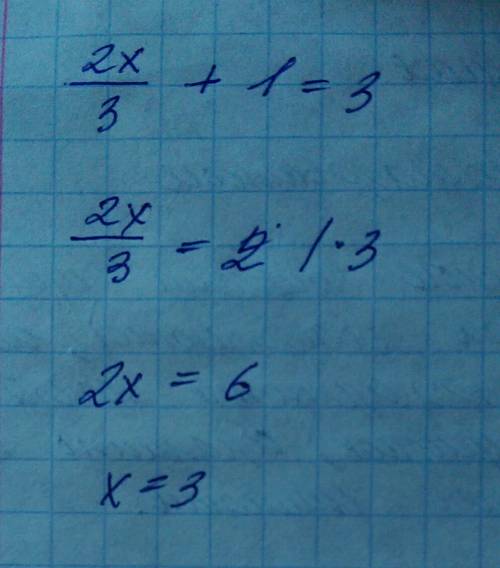 2x/3 + 1 = 3
2x/3 = 2 / · 3
2x = 6
x = 3